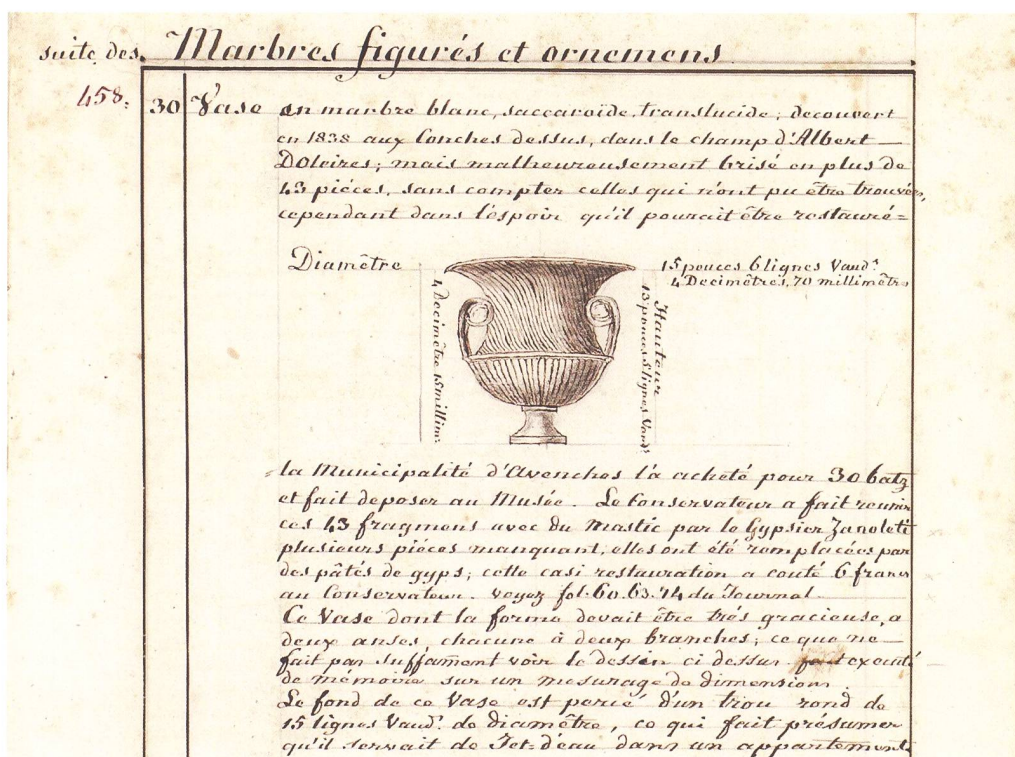 suite des. Marbres figurés et ornemens
458. 30 Vase en marbre blanc, saccaroïde, translucide; decouvert
en 1838 aux Conches dessus, dans le champ d'Albert
Doleires; mais malheureusement brisé en plus de
43 piéces, sans compter celles qui n'ont pu être trouvées,
cependant dans l'espoir qu'il pourait être restauré=
Diamêtre
15 pouces 6 lignes Vaud.s
4 Decimêtres, 70 millimêtres
4 decimêtre 15 millim.
Hauteur
13 pouces 8 lignes Vaud.s
la Municipalité d'Avenches l'a acheté pour 30 batz
et fait deposer au Musée. Le Conservateur a fait reunir
ces 43 fragmens avec du mastic par le Gypsier Zanoleti
plusieurs piéces manquant, elles ont été remplacées par
des pâtés de gyps; cette casi restauration a couté 6 francs
au Conservateur. voyez fol. 60. 63. 74 du Journal.
Ce Vase dont la forme devait être trés gracieuse, a
deux anses, chacune à deux branches; ce que ne
fait pas suffament voir le dessin ci dessus executé
de mémoire sur un mesurage de dimensions.
Le fond de ce Vase est percé d'un trou rond de
15 lignes Vaud.s de diamêtre, ce qui fait présumer
qu'il servait de Jet-d'eau dans un appartement.